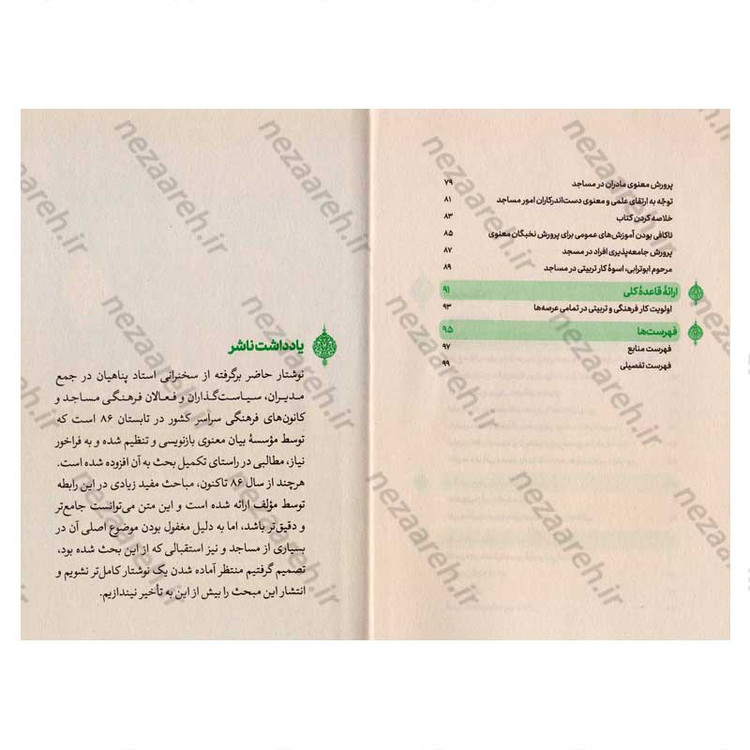 پرورش معنوی مادران در مساجد ۷۹
توجّه به ارتقای علمی و معنوی دست‌اندرکاران امور مساجد ۸۱
خلاصه کردن کتاب ۸۳
ناکافی بودن آموزش‌های عمومی برای پرورش نخبگان معنوی ۸۵
پرورش جامعه‌پذیری افراد در مسجد ۸۷
مرحوم ابوترابی، اسوۀ کار تربیتی در مساجد ۸۹
ارائۀ قاعدۀ کلی ۹۱
اولویت کار فرهنگی و تربیتی در تمامی عرصه‌ها ۹۳
فهرست‌ها ۹۵
فهرست منابع ۹۷
فهرست تفصیلی ۹۹
یادداشت ناشر
نوشتار حاضر برگرفته از سخنرانی استاد پناهیان در جمع
مدیران، سیاست‌گذاران و فعالان فرهنگی مساجد و
کانون‌های فرهنگی سراسر کشور در تابستان ۸۶ است که
توسط مؤسسۀ بیان معنوی بازنویسی و تنظیم شده و به فراخور
نیاز، مطالبی در راستای تکمیل بحث به آن افزوده شده است.
هرچند از سال ۸۶ تاکنون، مباحث مفید زیادی در این رابطه
توسط مؤلف ارائه شده است و این متن می‌توانست جامع‌تر
و دقیق‌تر باشد، اما به دلیل مغفول بودن موضوع اصلی آن در
بسیاری از مساجد و نیز استقبالی که از این بحث شده بود،
تصمیم گرفتیم منتظر آماده شدن یک نوشتار کامل‌تر نشویم و
انتشار این مبحث را بیش از این به تأخیر نیندازیم.
nezaareh.ir